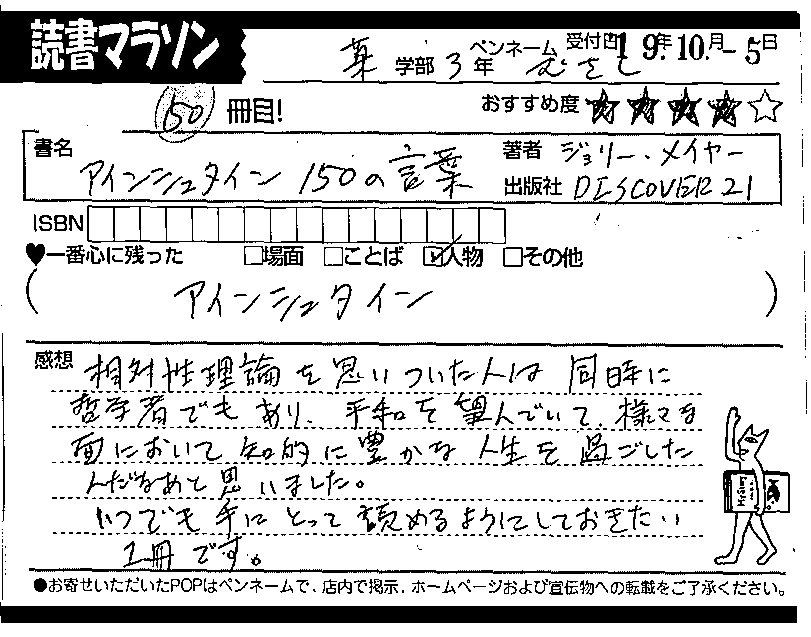 読書マラソン
薬 学部 3年 ペンネーム むさし 受付日 19年10月-5日
150 冊目! おすすめ度 ★★★★☆
書名 アインシュタイン 150の言葉
著者 ジェリー・メイヤー
出版社 DISCOVER 21
ISBN
♥一番心に残った □場面 □ことば ☑人物 □その他
( アインシュタイン )
感想 相対性理論を思いついた人は 同時に
哲学者でもあり、平和を望んでいて、様々な
面において知的に豊かな人生を過ごした
んだなあと思いました。
いつでも手にとって読めるようにしておきたい
1冊です。
English
●お寄せいただいたPOPはペンネームで、店内で掲示、ホームページおよび宣伝物への転載をご了承ください。